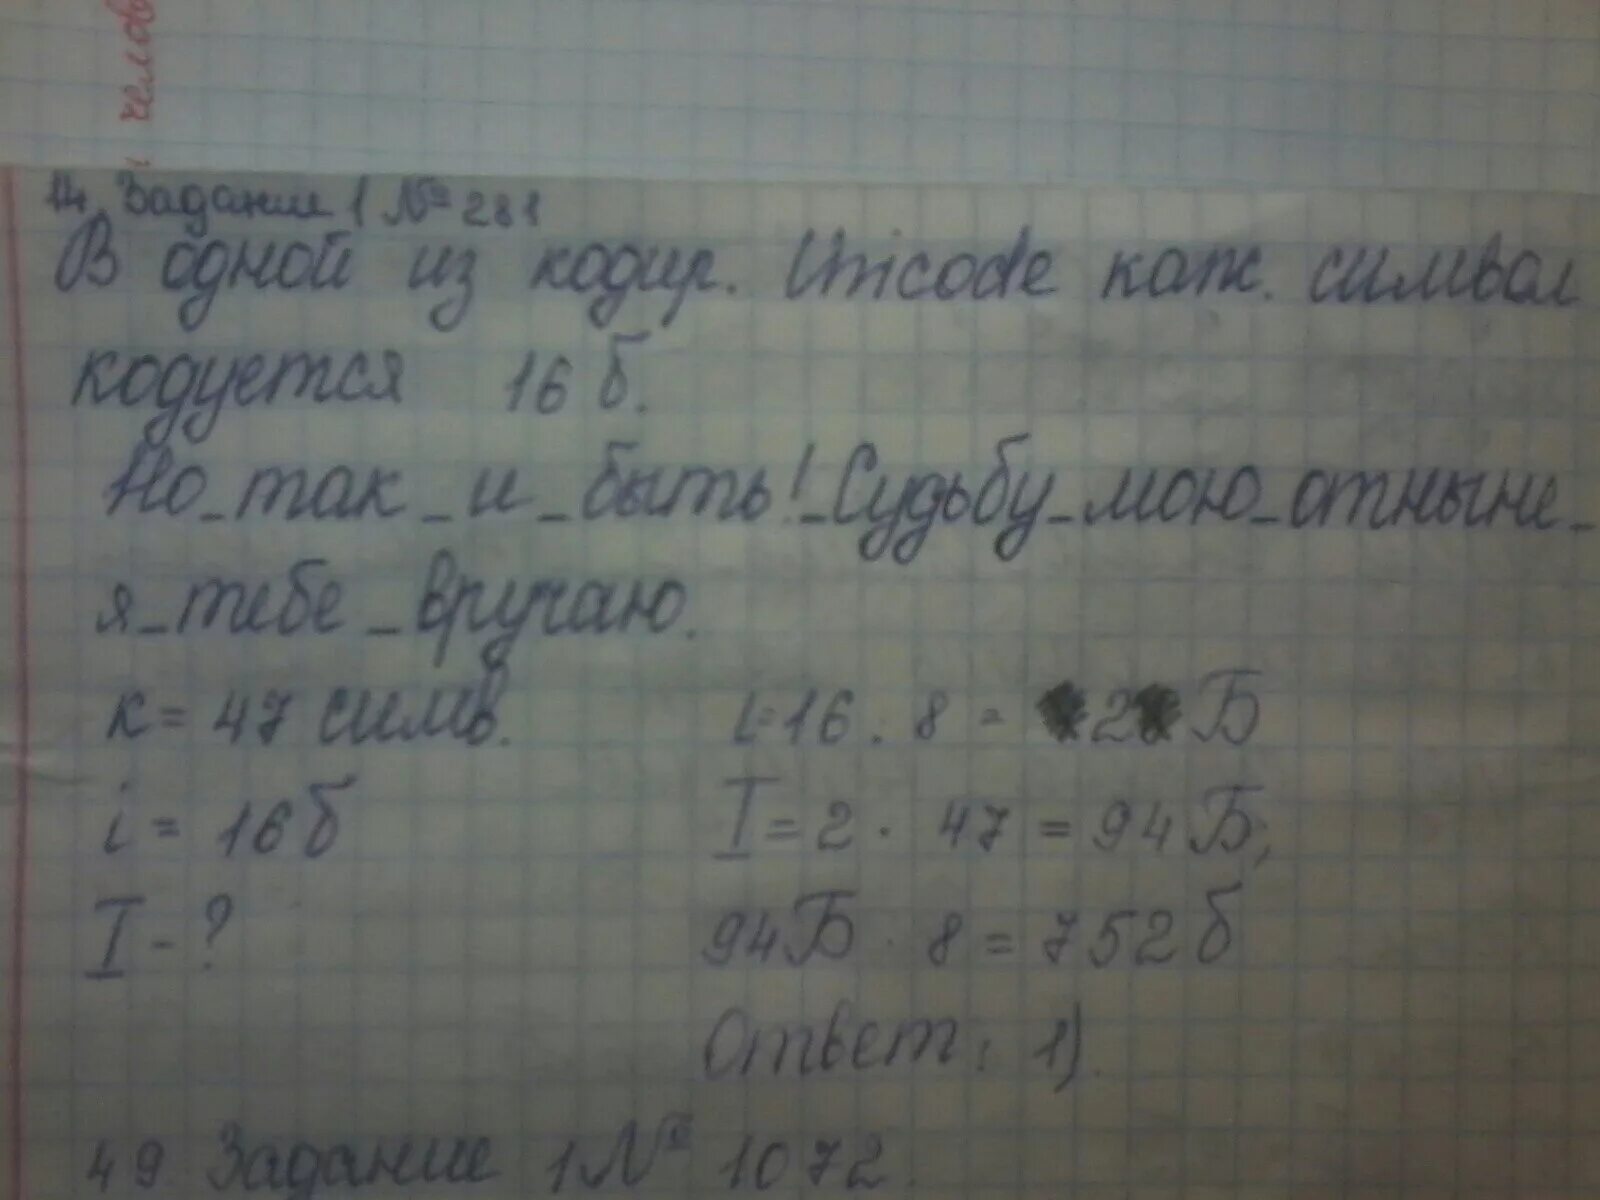 челов
14. Задание 1 № 281
В одной из кодир. Unicode каж. символ
кодуется 16 б.
Но_так_и_быть!_Судьбу_мою_отныне_
я_тебе_вручаю.
к = 47 симв.
i = 16 б
I - ?
i=16 : 8 = 2 Б
I = 2 · 47 = 94 Б;
94 Б · 8 = 752 б
Ответ: 1).
49 Задание 1 № 1072.